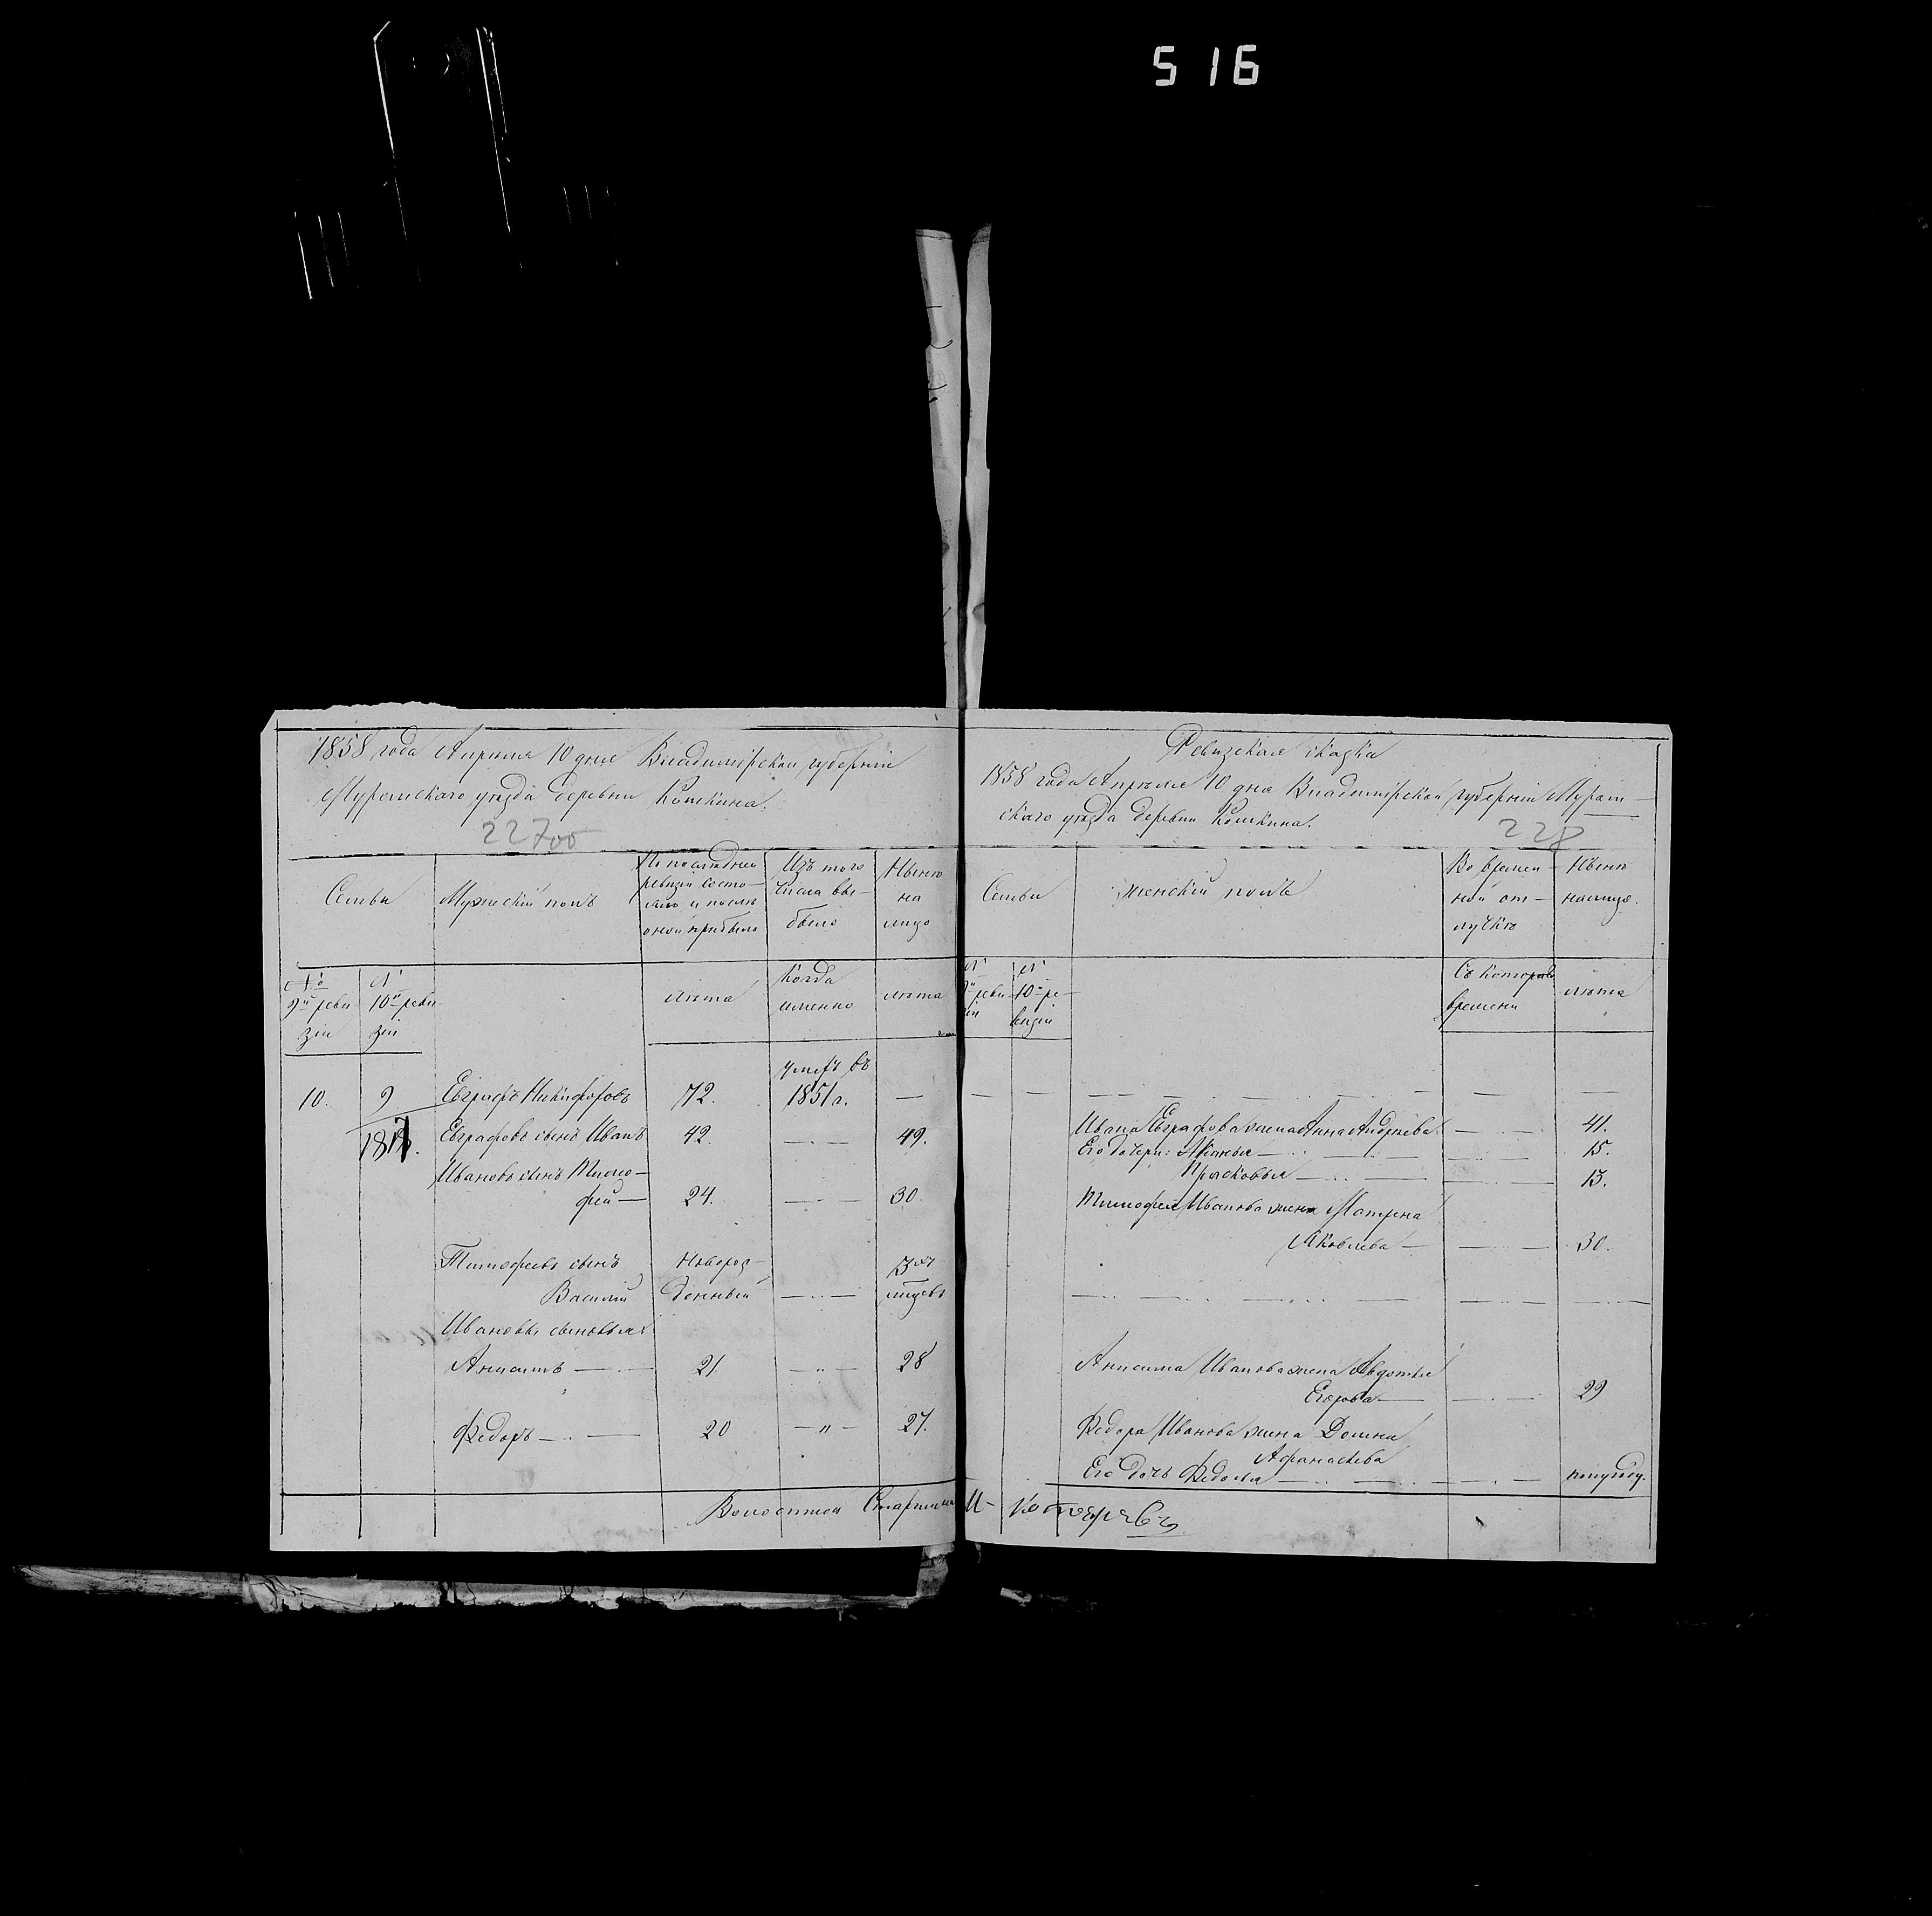 516
1858 года Апреля 10 дня Владимірской губерніи
Муромскаго уезда деревни Кошкина.
227об
Семьи
Мужескій полъ
По последней ревизіи состо-
яло и после оной прибыло
Изъ того числа вы-
было
Ныне на лицо
№ 9й реви зіи
№ 10й реви- зіи
лета
когда именно
лета
10. 9 Евграфъ Никифоровъ 72. умеръ въ 1851 г. —
Евграфовъ сынъ Иванъ 42. — " — 49.
Ивановъ сынъ Тимо-
фей — 24. — " — 30.
Тимофеевъ сынъ Новорож- 3хъ
Василій денный — " — месцевъ
Ивановы сыновья
Анисимъ — 21 — " — 28
Федоръ — 20 — " — 27.
Волостной Старшина
Ревизская сказка
1858 года Апреля 10 дня Владимірской губерніи Муром-
скаго уезда деревни Кошкина.
228
Семьи
женскій полъ
Во времен-
ной от-
лучке
Ныне
налицо.
№ 9й реви зіи
№ 10й ре- визіи
Съ котораго времени
лета
Ивана Евграфова жена Анна Андреева — 41.
Его дочери: — 15.
Прасковья — 13.
Тимофея Иванова жена Матрена
Яковлева — 30.
Анисима Иванова жена Авдотья
Егорова — 29
Федора Иванова жена Домна
Афанасьева
Его дочь Федосья — полугоду.